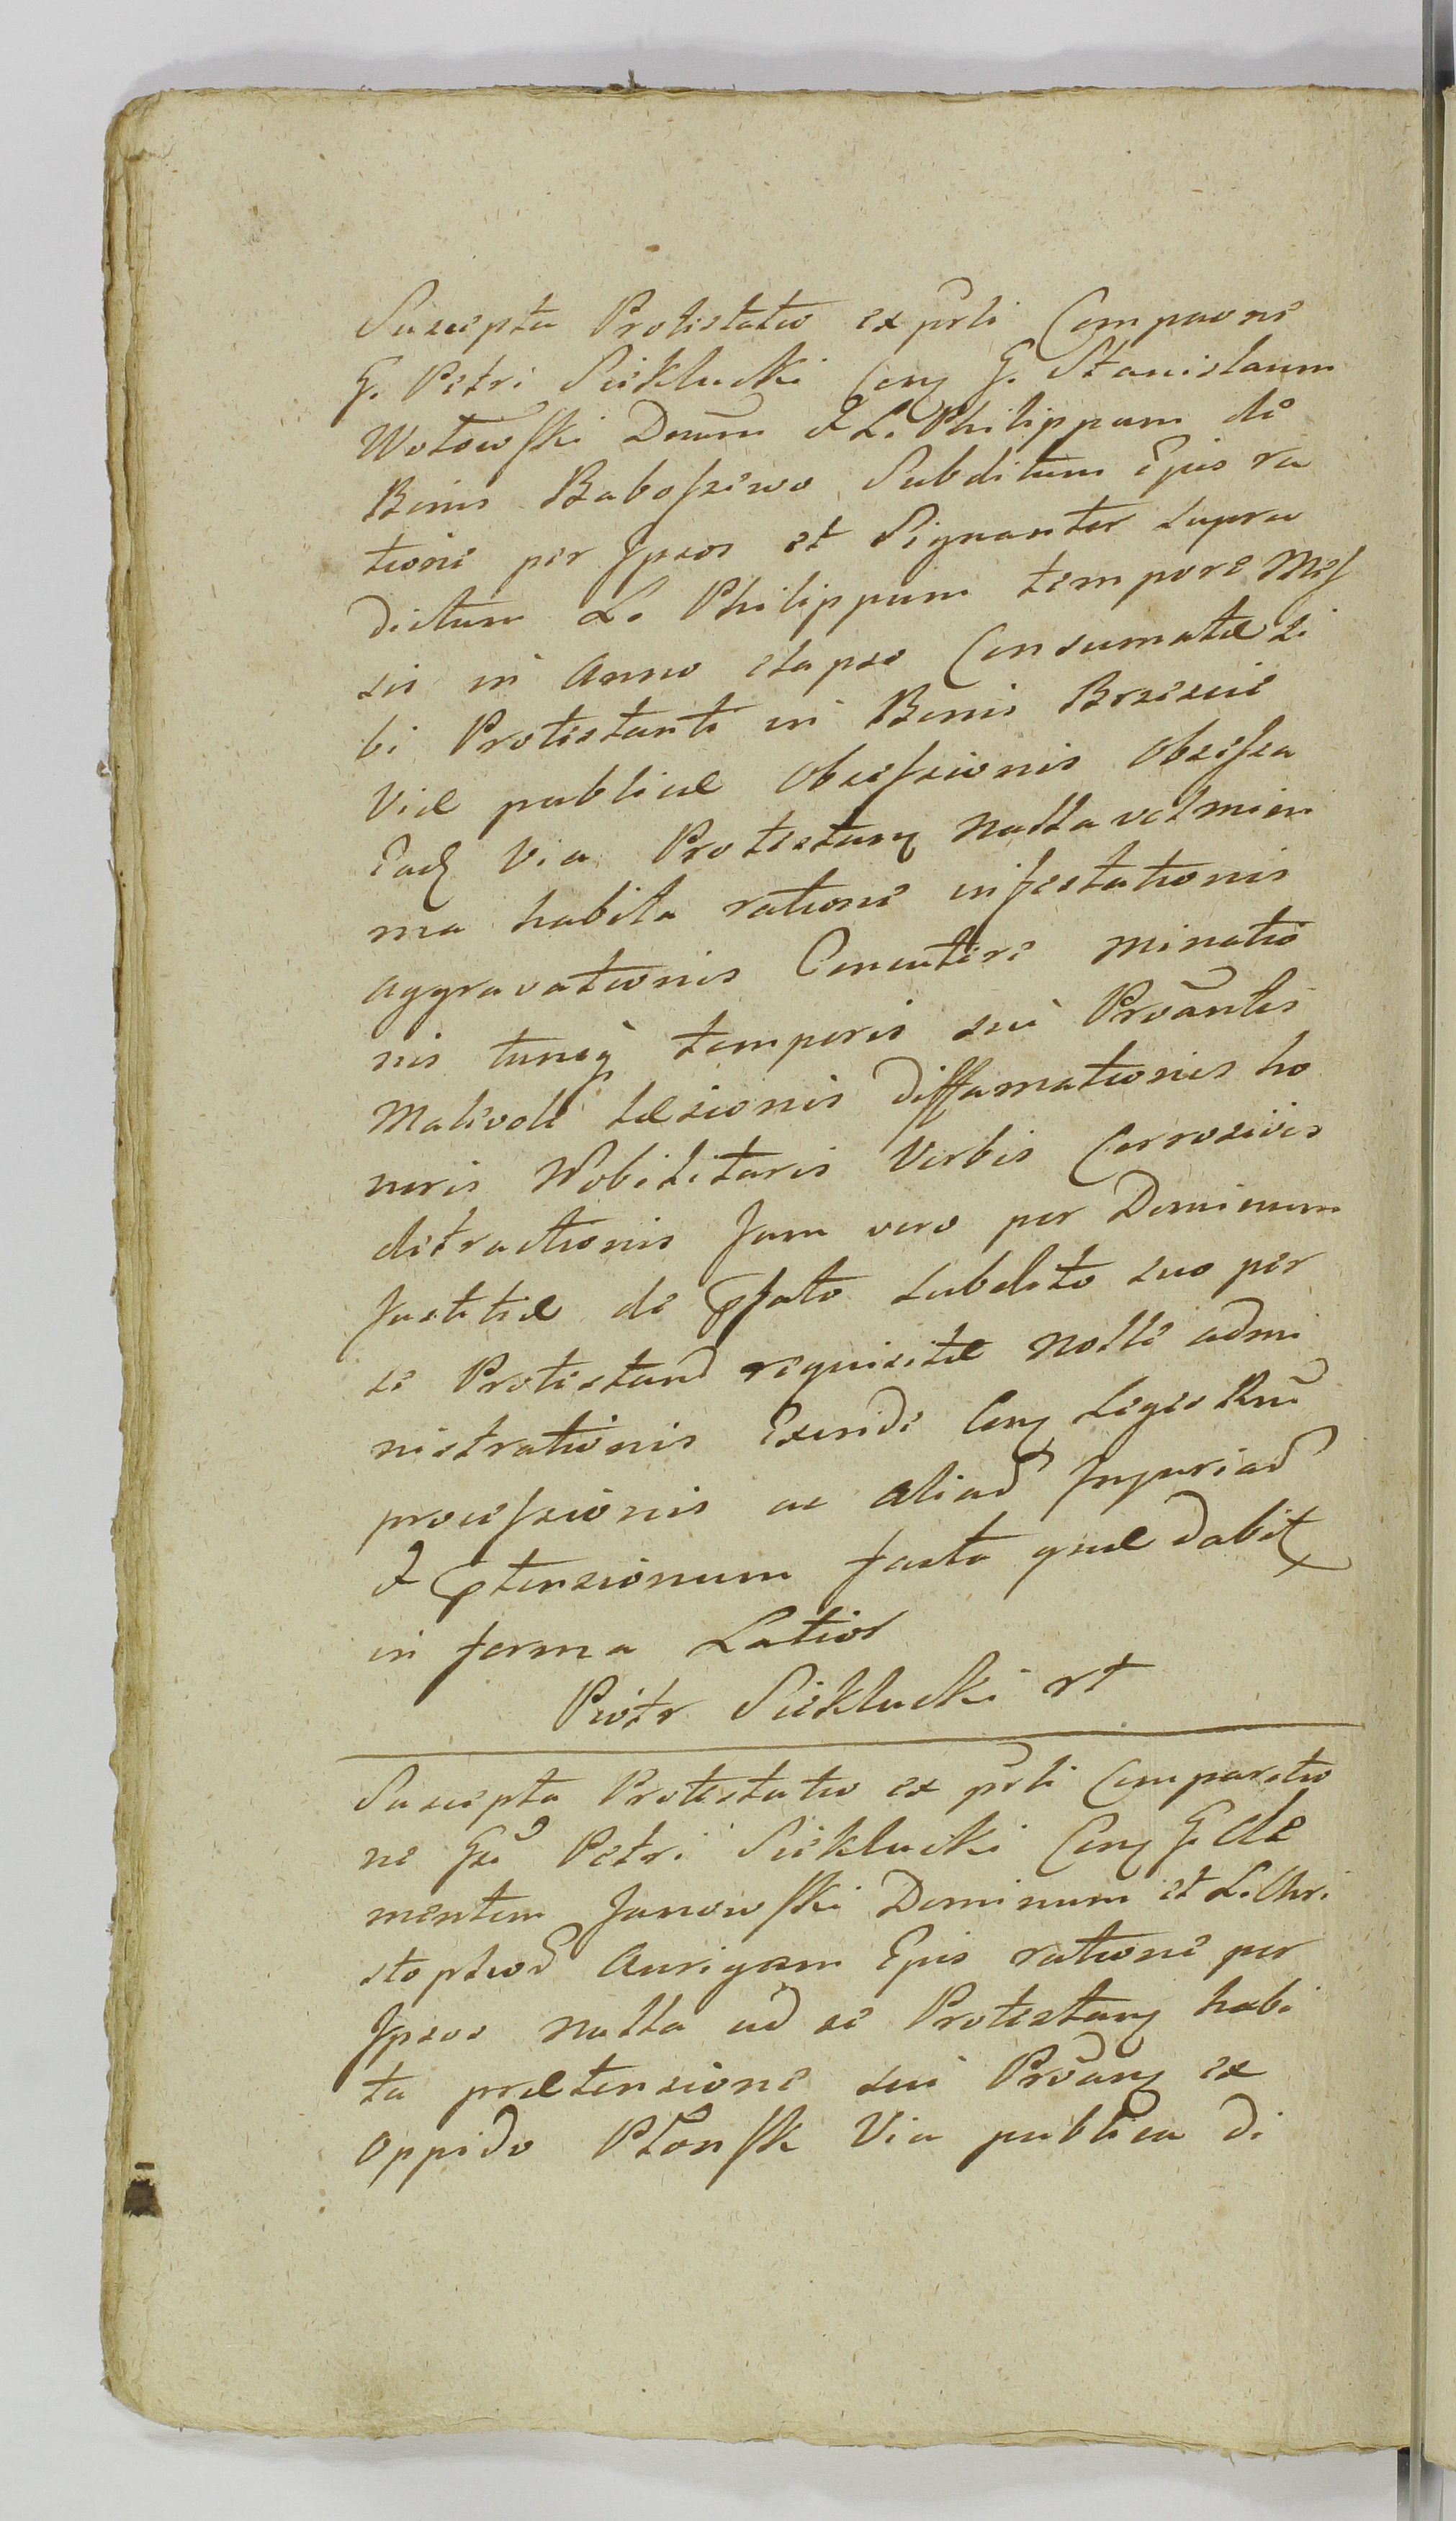 Suscepta Protestatio ex prīli Compaone
G. Petri Sieklucki Cong G. Stanislaum
Wołowſki Dnum & L. Philippum de
Bonis Baboſzewo Subditum Ejus ra
tione per Ipsos et Signanter supra
dictum L. Philippum tempore Meſ
sis in Anno elapso Consumatæ si
bi Protestanti in Bonis Brzescie
Viæ publicæ obseſsionis obseſsa
Eadq Via Protestang nulla vel mini
ma habita ratione infestationis
aggravationis Concutere minatio
nis tuncq temporis sui Proāntis
Malevole læsionis diffamationis ho
noris Nobilitaris Verbis Corrosivis
detractionis Jam vero per Dominum
Justitiæ de Pfato subdito suo per
se Protestand requisitæ nolle admi
nistrationis Exinde Cong Leges Rni
proceſsionis ac aliad Injuriad
& Ptensionum facta quæ dabit
in forma Latior
Piotr Sieklucki rt
Suscepta Protestatio ex prīli Comparitio
ne Gsi Petri Sieklucki Cong G. Cle
mentem Janowſki Dominum et L. Chri
stophod Aurigam Ejus ratione per
Ipsos nulla ad se Protestang habi
ta prætensione sui Proāng ex
oppido Płonſk Via publica di